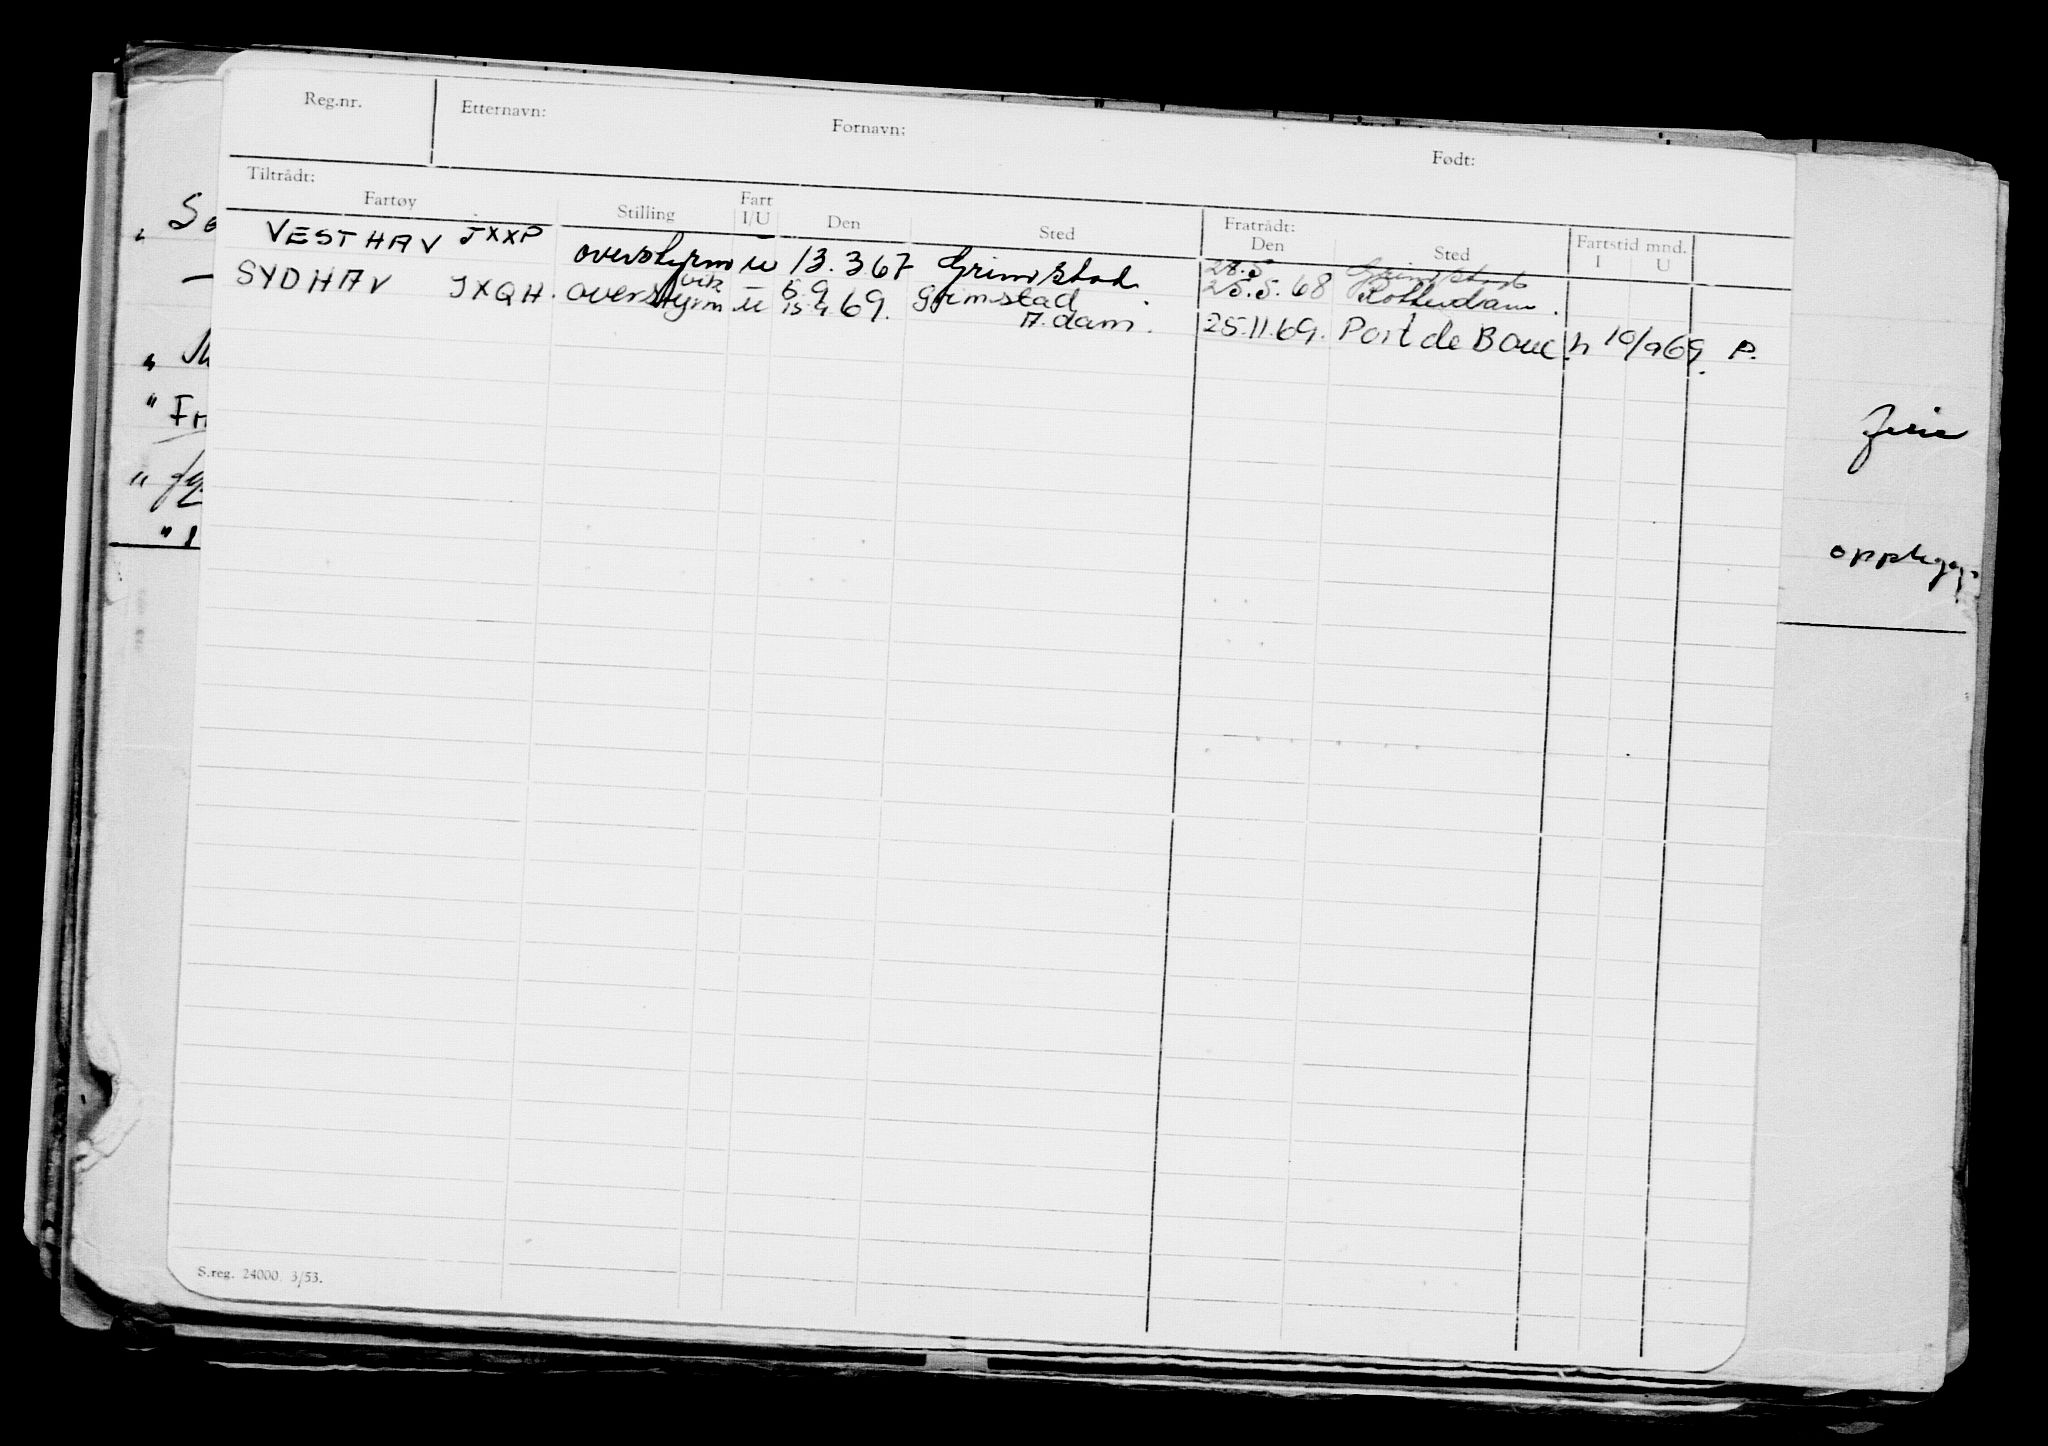 Reg.nr. Etternavn: Fornavn: Født:
Tiltrådt: Fratrådt:
Fartøy Stilling Fart I/U Den Sted Den Sted Fartstid mnd. I U
VESTHAV JXXP overstyrm u 13.3 67 Grimstad 28.5 Grimstad
25.5.68 Rotterdam.
SYDHAV JXQH. overstyrm vik u 5.9 Grimstad
15.9 69. A.dam. 25.11.69. Port de Bouc. h 10/9 69. P.
" So
" M
" Fr
ferie
opplegg
S.reg. 24000. 3/53.